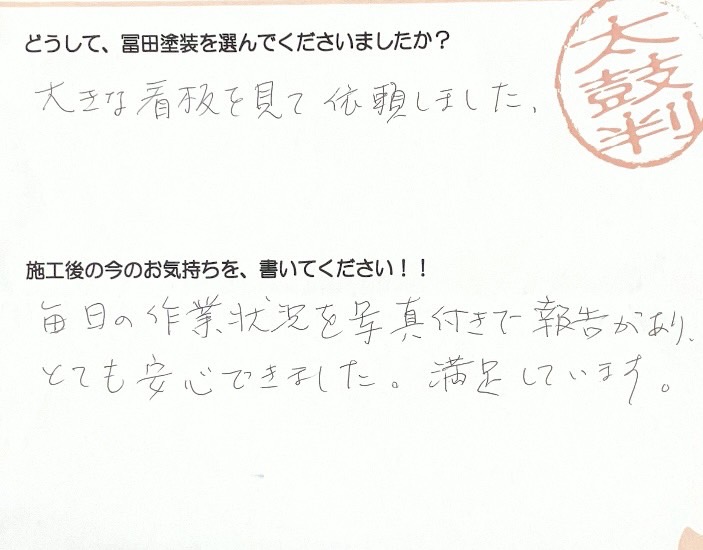 どうして、冨田塗装を選んでくださいましたか?
大きな看板を見て依頼しました、
太鼓判
施工後の今のお気持ちを、書いてください!!
毎日の作業状況を写真付きで報告があり、
とても安心できました。満足しています。